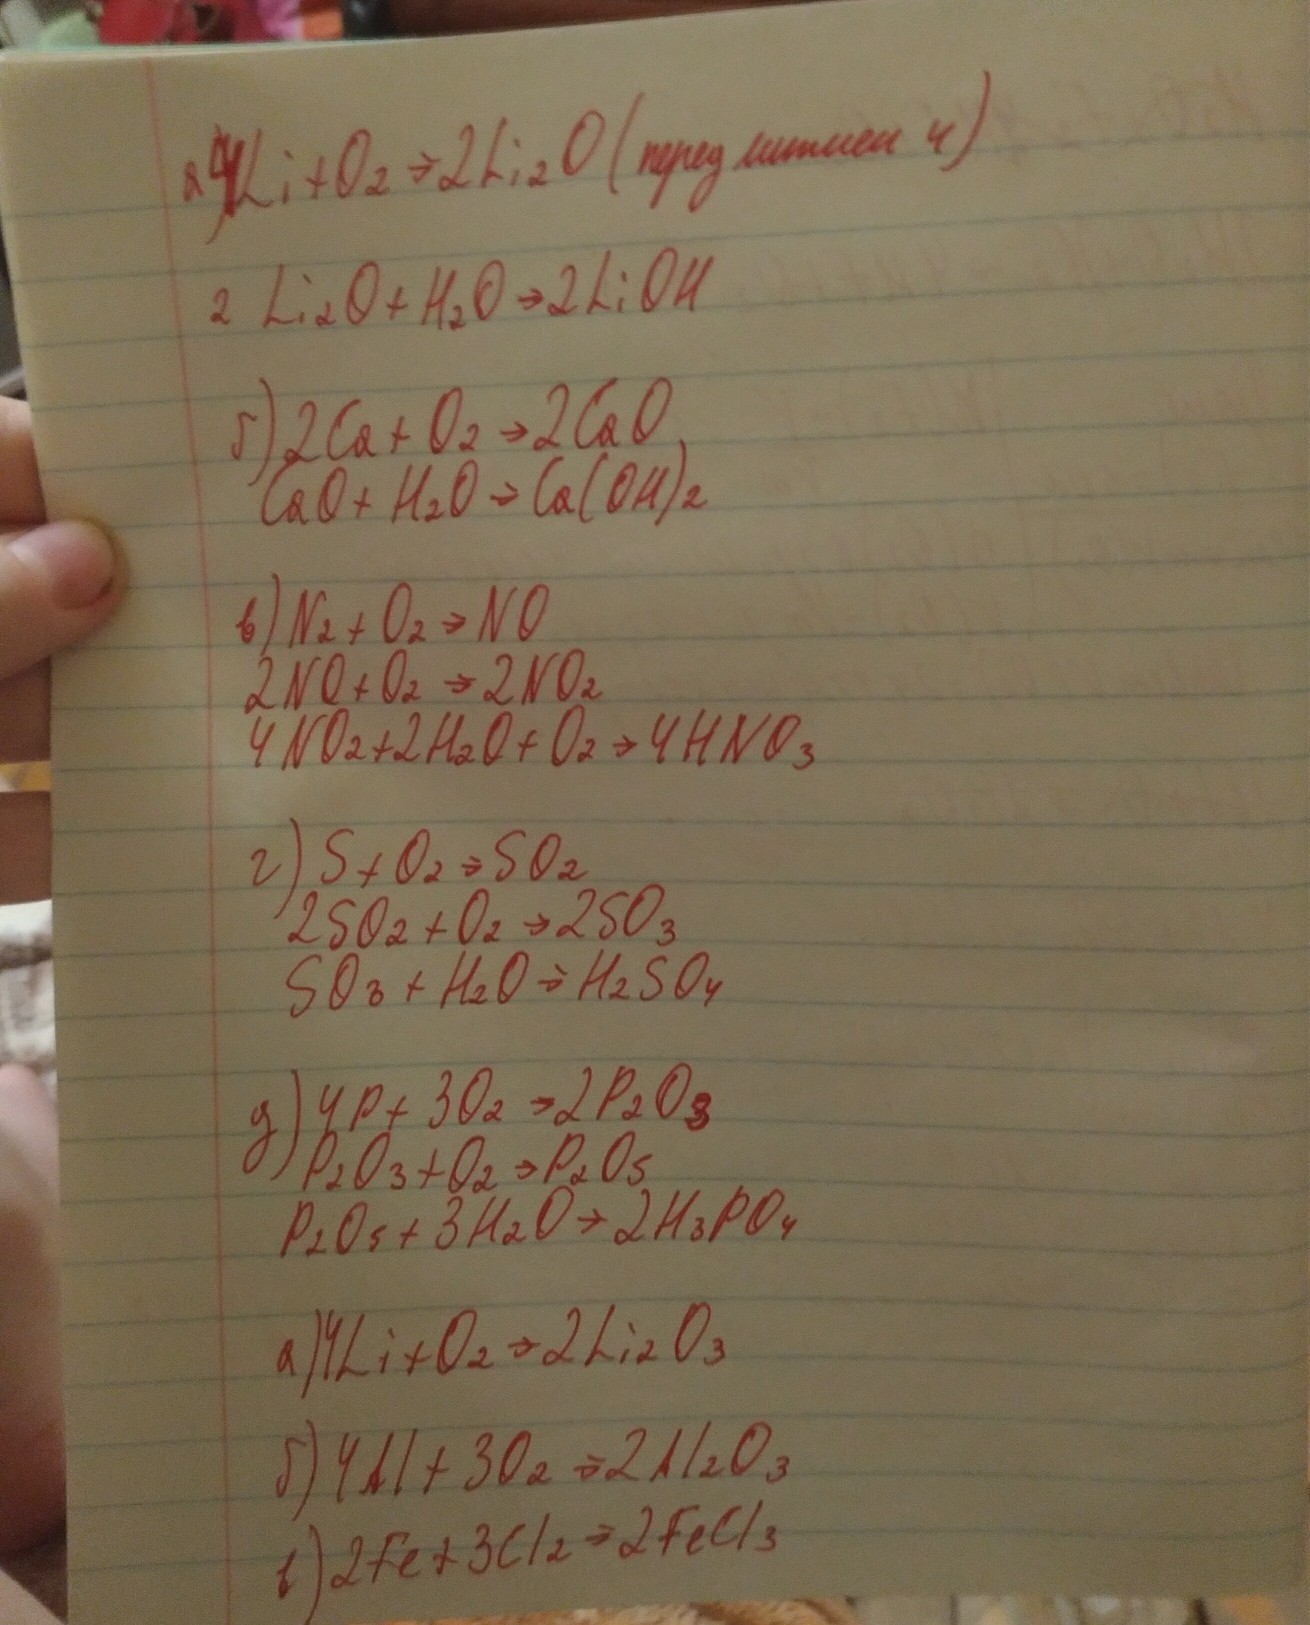 а) 4Li + O₂ → 2Li₂O (перед литием 4)
2 Li₂O + H₂O → 2LiOH
б) 2Ca + O₂ → 2CaO
CaO + H₂O → Ca(OH)₂
в) N₂ + O₂ → NO
2NO + O₂ → 2NO₂
4NO₂ + 2H₂O + O₂ → 4HNO₃
г) S + O₂ → SO₂
2SO₂ + O₂ → 2SO₃
SO₃ + H₂O → H₂SO₄
д) 4P + 3O₂ → 2P₂O₃
P₂O₃ + O₂ → P₂O₅
P₂O₅ + 3H₂O → 2H₃PO₄
а) 4Li + O₂ → 2Li₂O₃
б) 4Al + 3O₂ → 2Al₂O₃
в) 2Fe + 3Cl₂ → 2FeCl₃